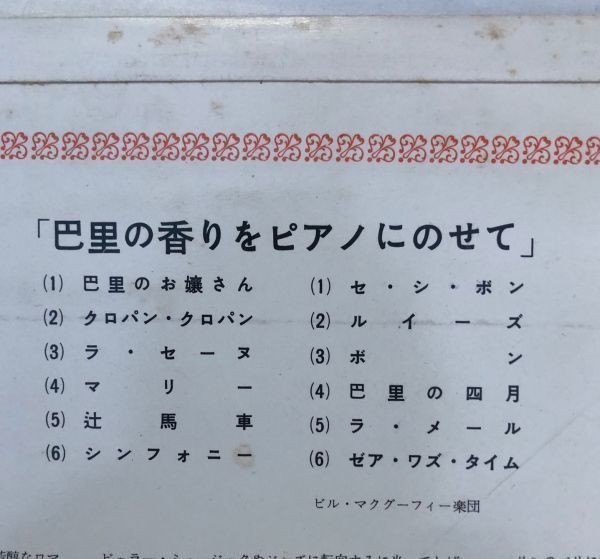 「巴里の香りをピアノにのせて」
(1) 巴里のお嬢さん
(2) クロパン・クロパン
(3) ラ・セーヌ
(4) マリー
(5) 辻馬車
(6) シンフォニー
(1) セ・シ・ボン
(2) ルイーズ
(3) ボン
(4) 巴里の四月
(5) ラ・メール
(6) ゼア・ワズ・タイム
ビル・マクグーフィー楽団